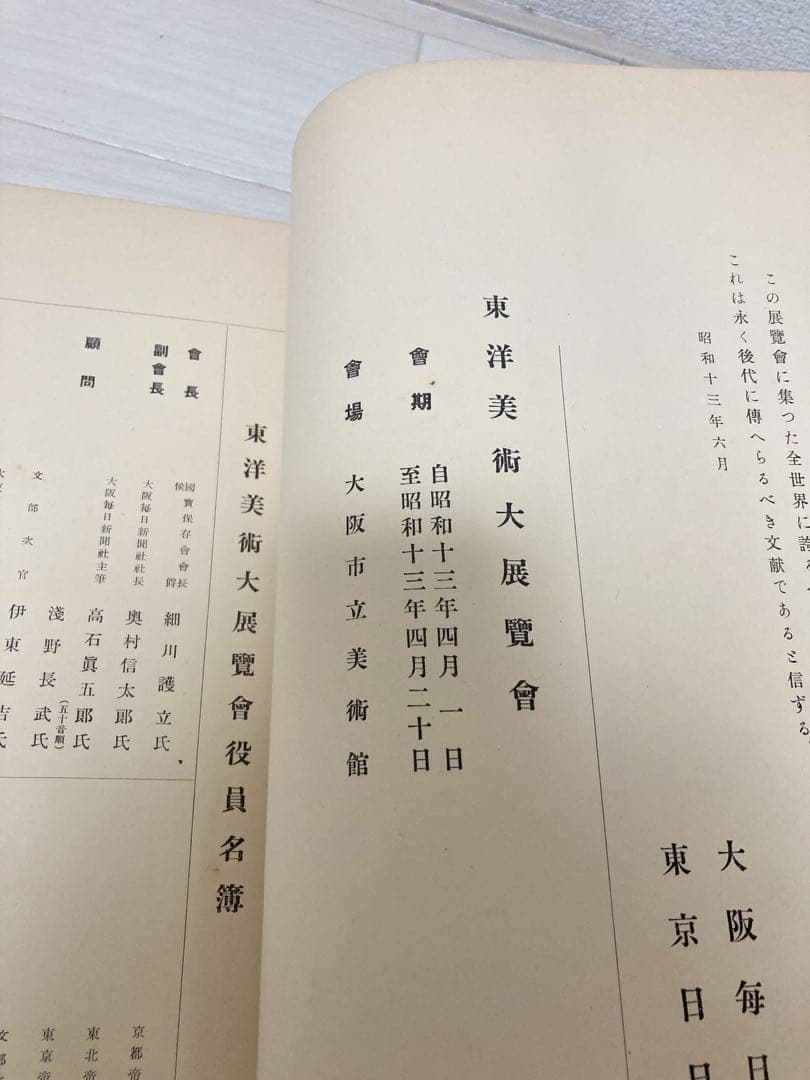 この展覽會に集つた全世界に誇る
これは永く後代に傳へらるべき文献であると信ずる。
昭和十三年六月
大阪每日
東京日日
東洋美術大展覽會
會期
自昭和十三年四月一日
至昭和十三年四月二十日
會場 大阪市立美術館
東洋美術大展覽會役員名簿
會長 國寶保存會會長 侯爵 細川護立氏
副會長 大阪每日新聞社社長 奧村信太郞氏
顧問 大阪每日新聞社主筆 高石眞五郞氏
(五十音順)
淺野長武氏
文部次官 伊東延吉氏
京都帝
東北帝
東京帝
文部